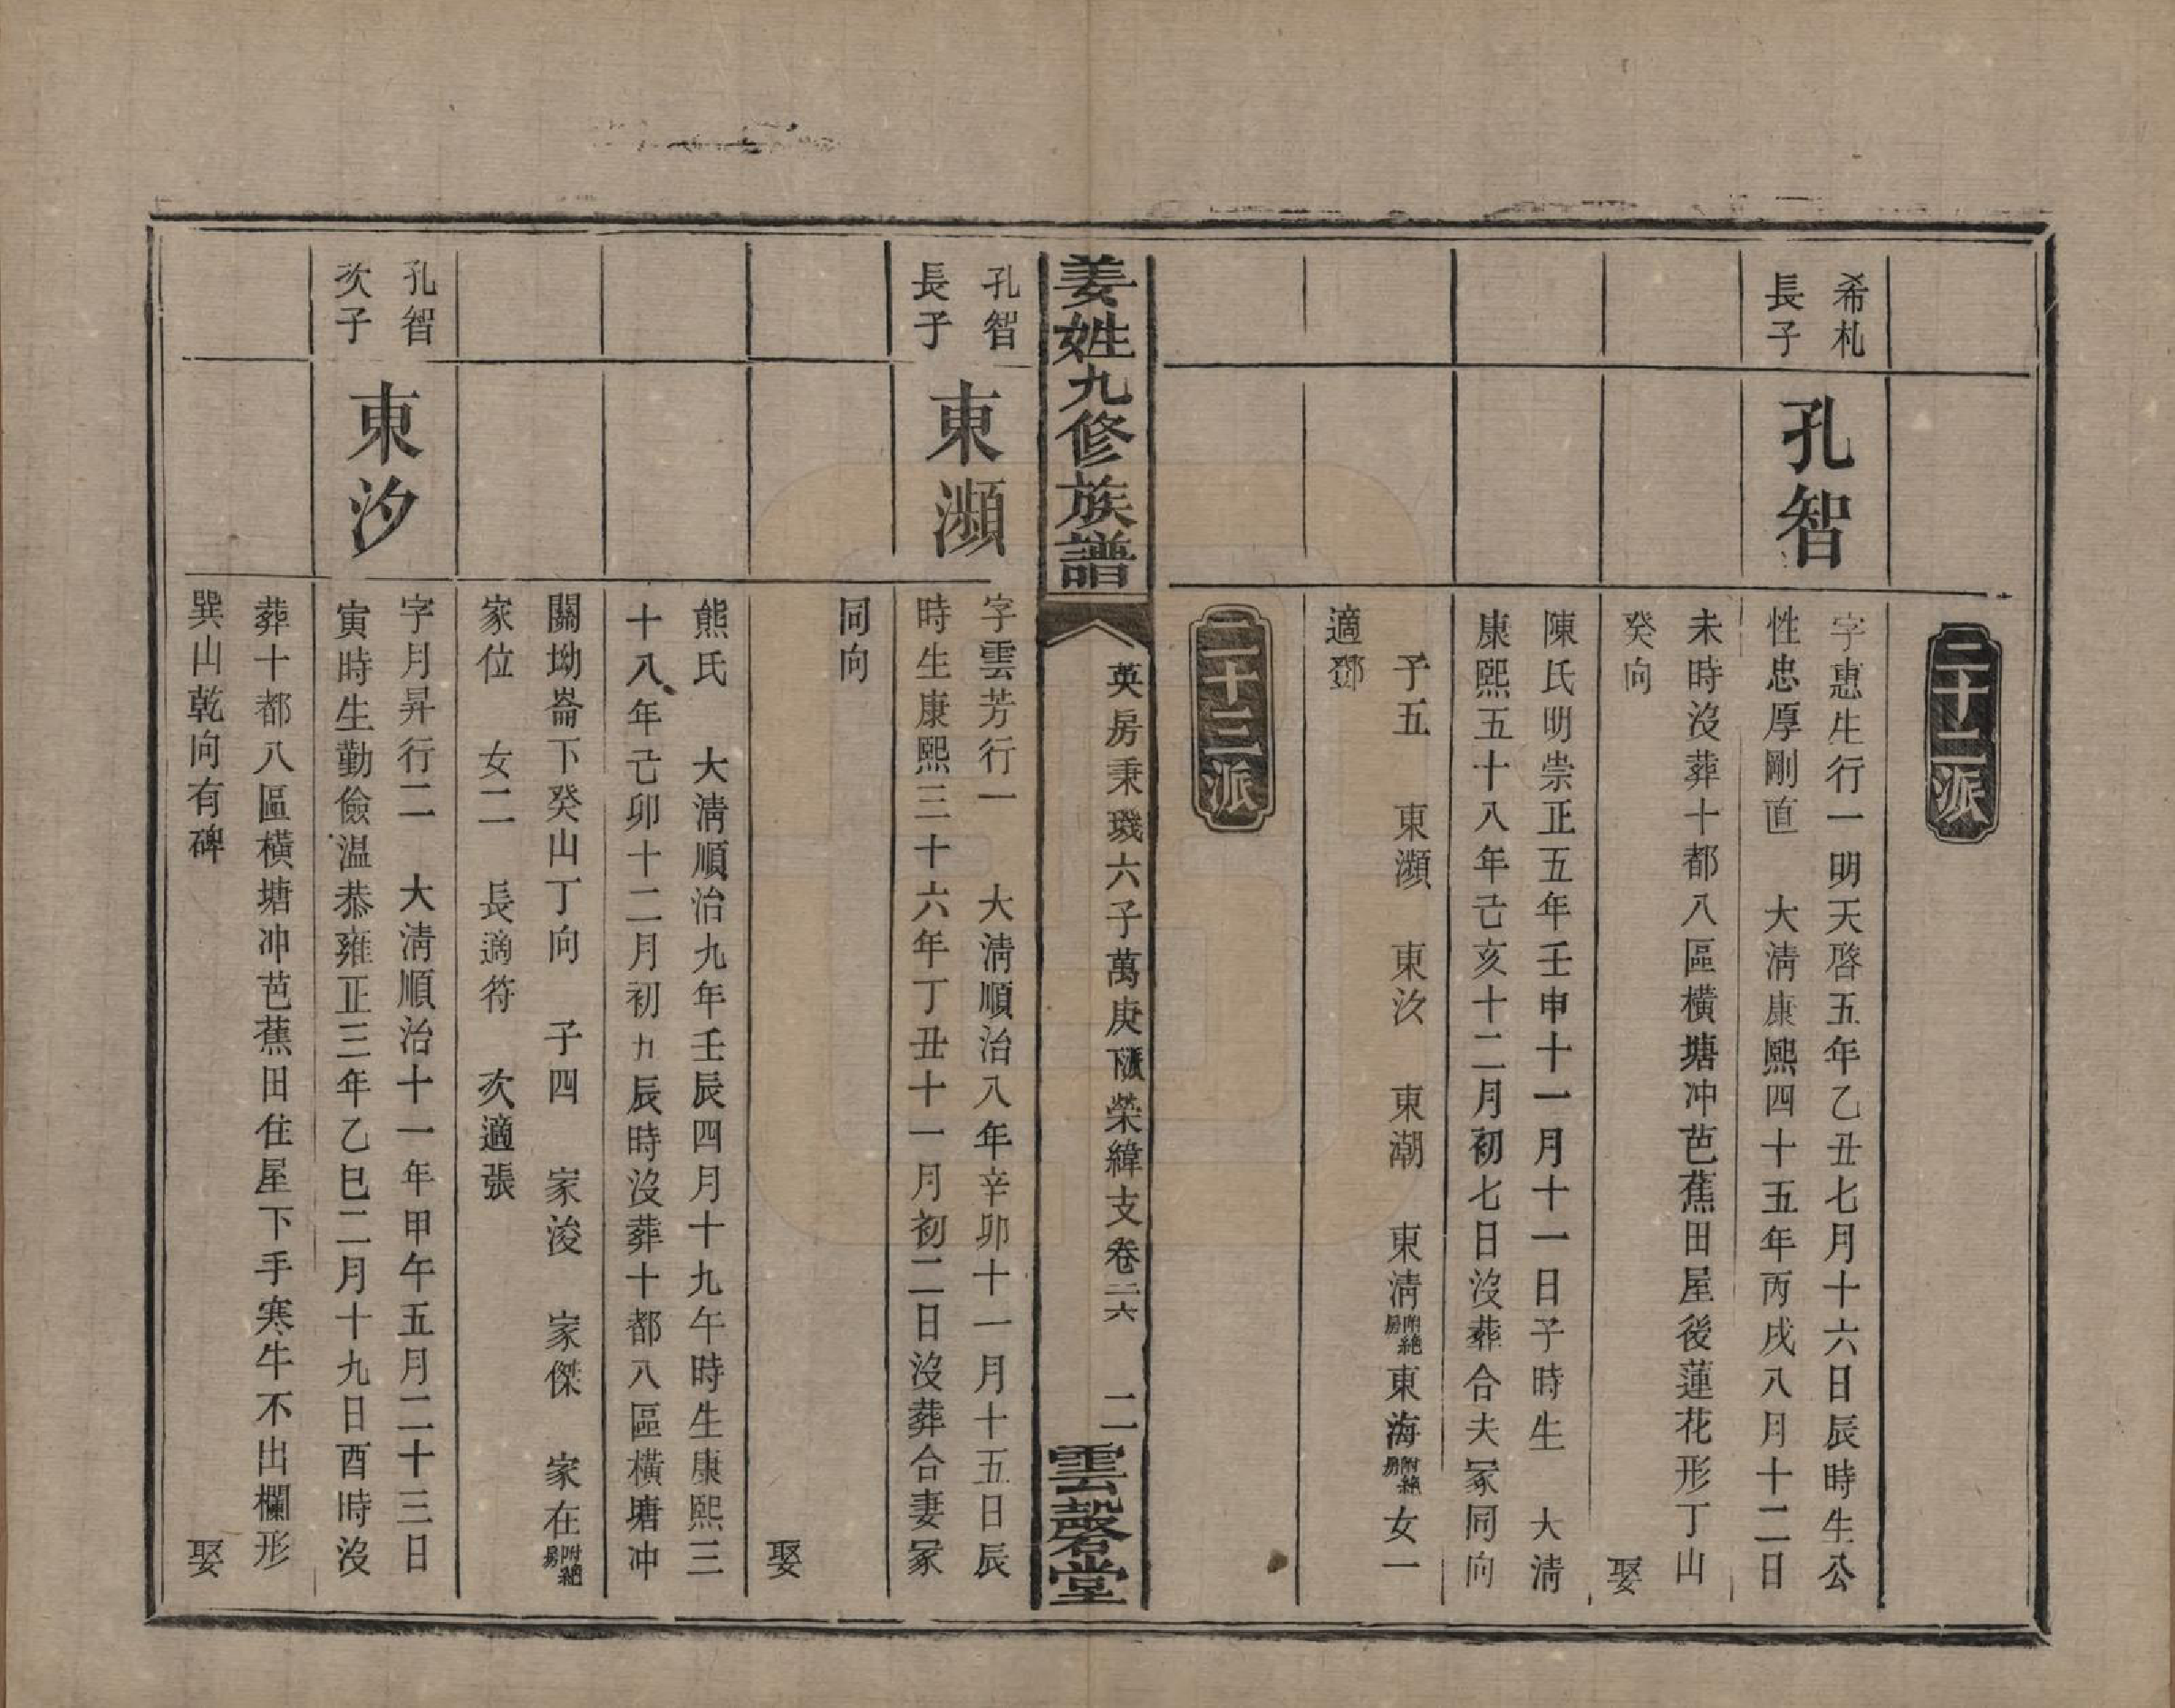 二十二派
希札
長子
孔智
字惠生行一明天啓五年乙丑七月十六日辰時生公
性忠厚剛直 大清康熙四十五年丙戌八月十二日
未時沒葬十都八區橫塘冲芭蕉田屋後蓮花形丁山
癸向 娶
陳氏明崇正五年壬申十一月十一日子時生 大清
康熙五十八年己亥十二月初七日沒葬合夫冢同向
子五 東瀕 東汐 東潮 東清附絕房東海附絕房女一
適鄧
二十三派
姜姓九修族譜
英房秉璣六子萬庚 榮緯支卷二六 二
雲磬堂
孔智
長子
東瀕
字雲芳行一 大清順治八年辛卯十一月十五日辰
時生康熙三十六年丁丑十一月初二日沒葬合妻冢
同向
娶
熊氏 大清順治九年壬辰四月十九午時生康熙三
十八年己卯十二月初九辰時沒葬十都八區橫塘冲
關坳崙下癸山丁向 子四 家浚 家傑 家在附絕房
家位 女二 長適符 次適張
孔智
次子
東汐
字月昇行二 大清順治十一年甲午五月二十三日
寅時生勤儉温恭雍正三年乙巳二月十九日酉時沒
葬十都八區橫塘冲芭蕉田住屋下手寒牛不出欄形
巽山乾向有碑 娶